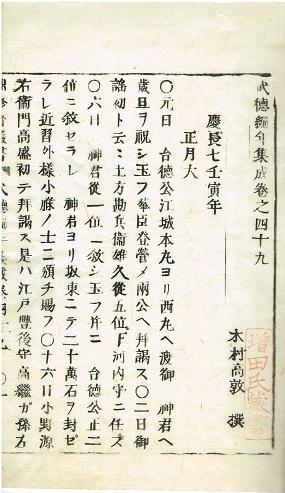 武德編年集成卷之四十九
木村高敦 撰
慶長七壬寅年
正月大
〇元日 台德公江城本丸ヨリ西丸ヘ渡御 神君ヘ
歳旦ヲ祝シ玉フ羣臣登營メ兩公ヘ拜謁ス〇二日御
謡初ト云ニ土方勘兵衞雄久從五位下河内守ニ任ズ
〇六日 神君從一位ニ敘シ玉フ并ニ 台德公正二
位ニ敘セラレ 神君ヨリ坂東ニテ二十萬石ヲ封ゼ
ラレ近習外樣小祿ノ士ニ頒チ賜フ〇十六日小野源
右衞門高盛初テ拜謁ス是ハ江戸豐後守高繼ガ孫右
增田氏藏書